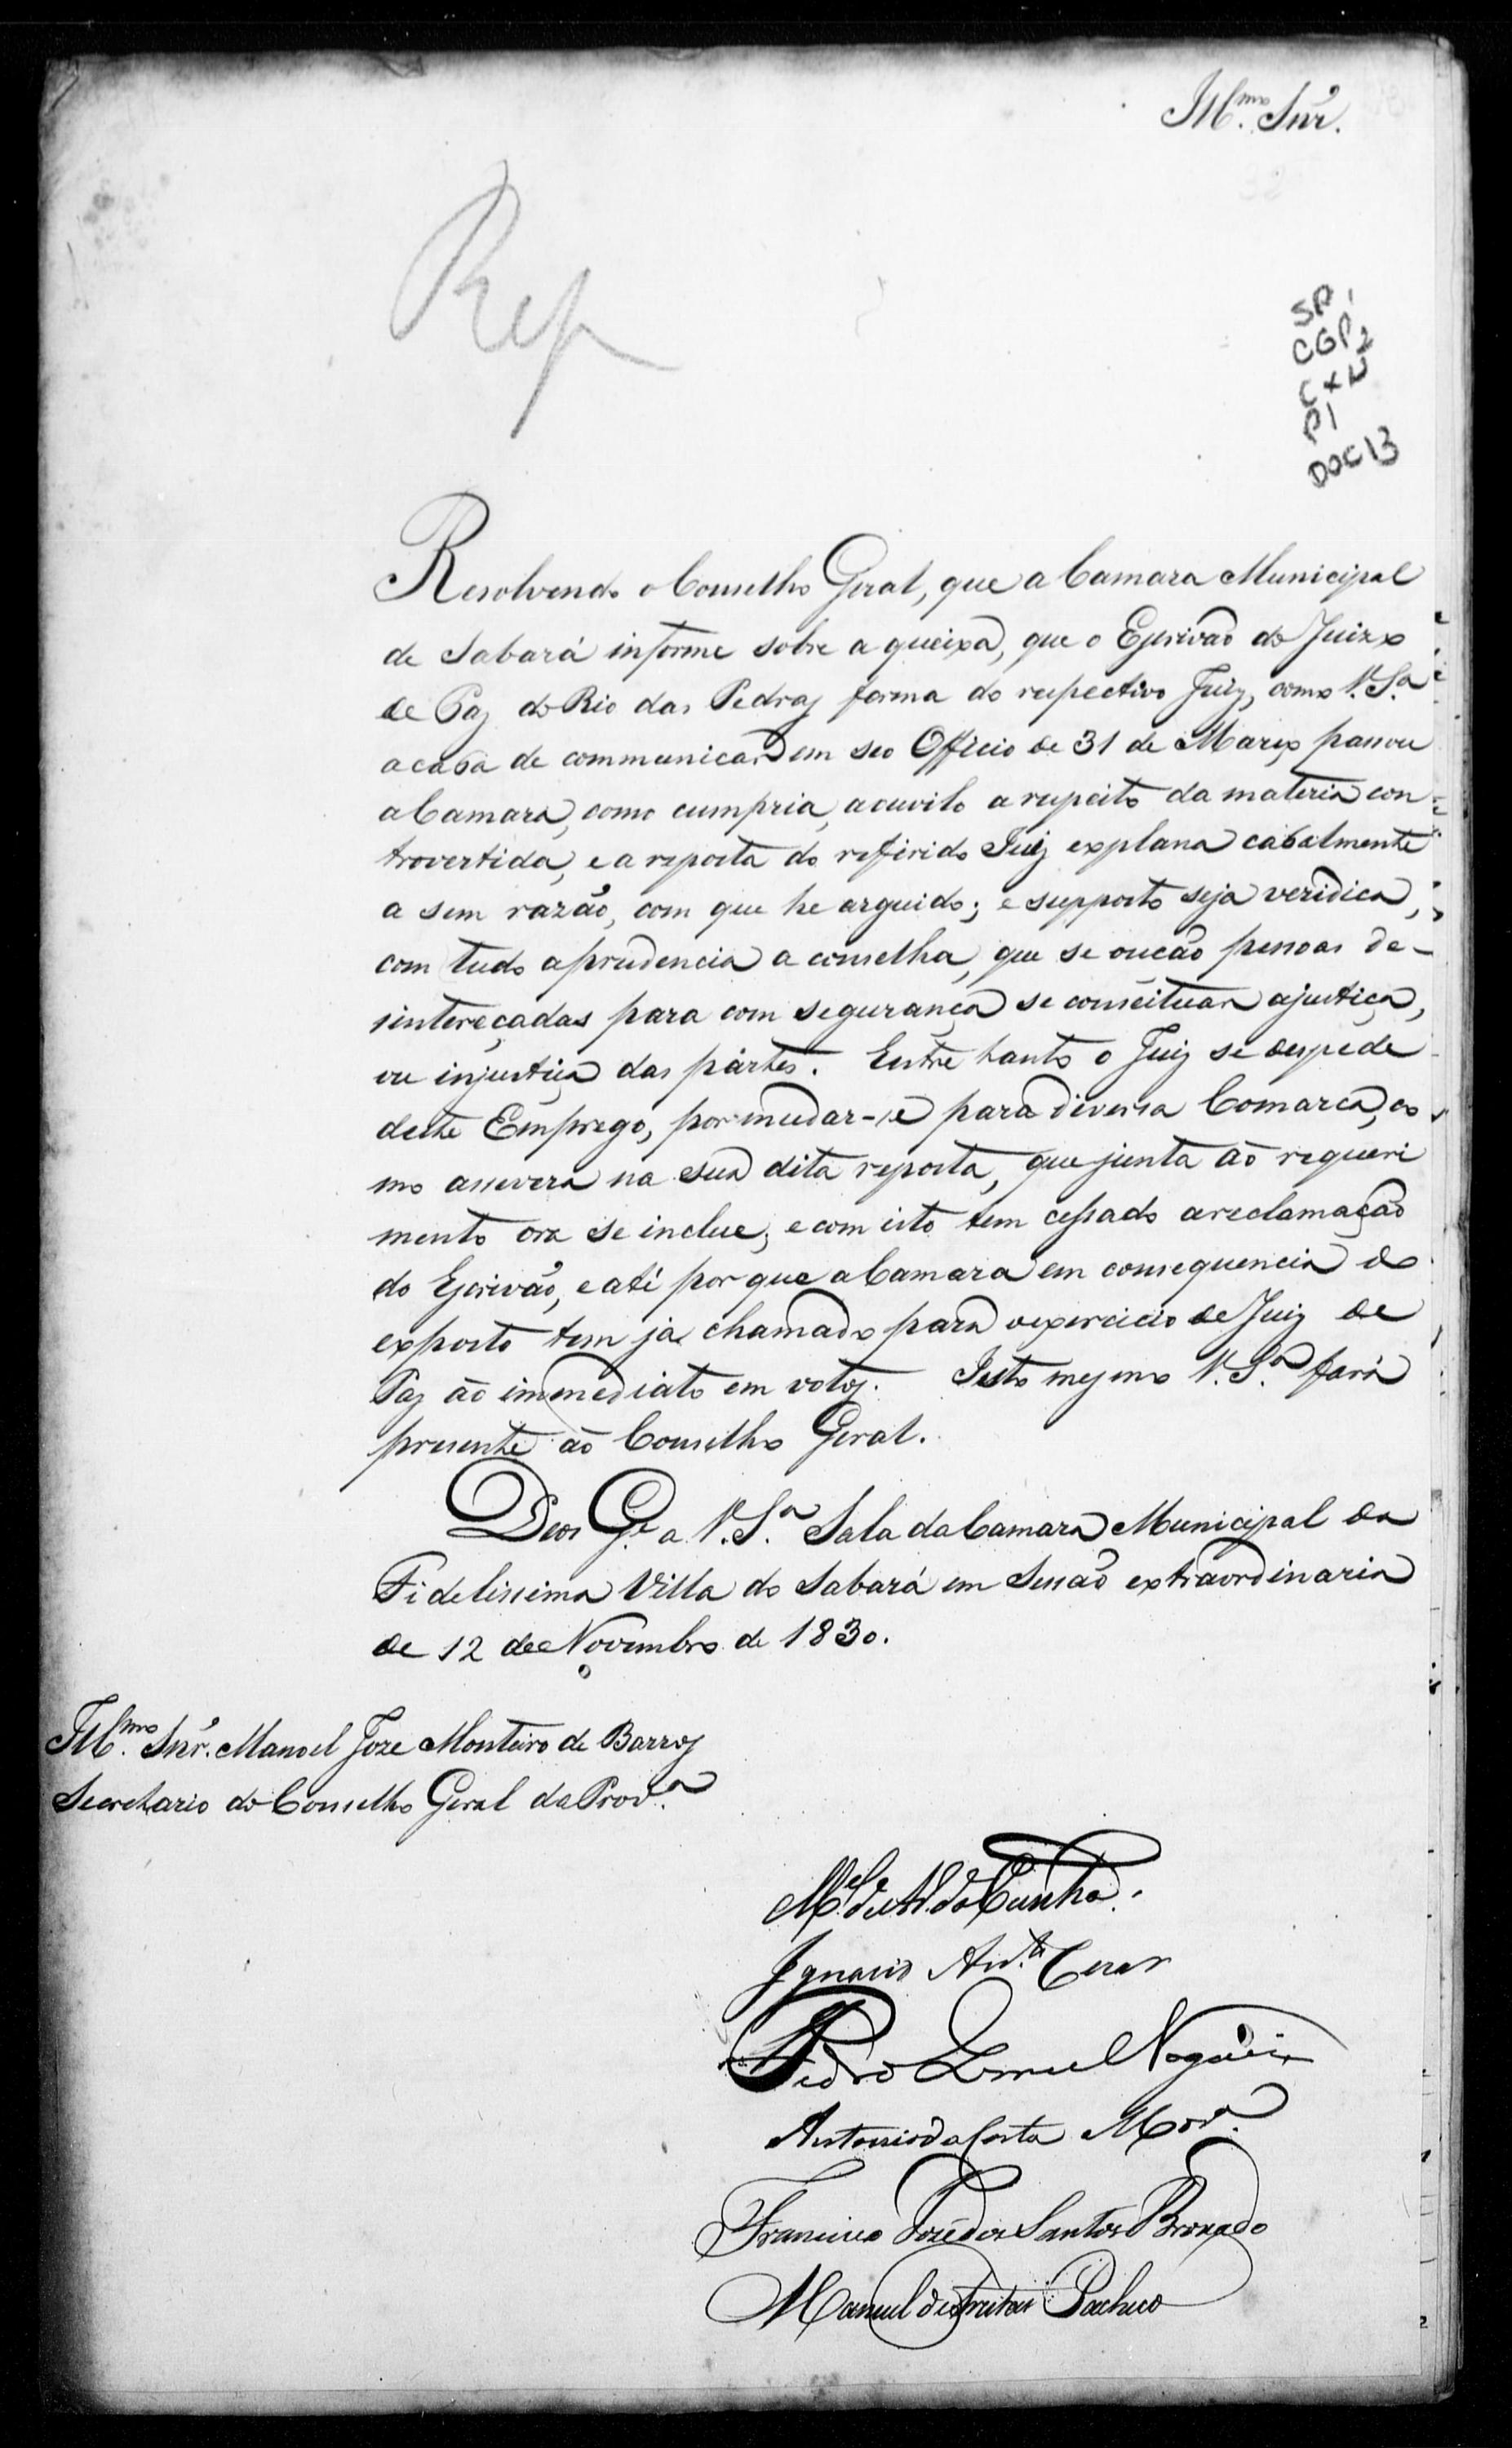 Ill.mo Snr.
Rep
SP,
CGP2
CX
P1
DOC13
Resolvendo o Conselho Geral, que a Camara Municipal
de Sabará informe sobre a queixa, que o Escrivão do Juizo
de Paz do Rio das Pedras forma do respectivo Juiz, como V. S.a
acaba de communicar em seo Officio de 31 de Março passou
a Camara, como cumpria, a ouvilo a respeito da materia con-
trovertida, e a reposta do referido Juiz explana cabalmente
a sem razão, com que he arguido; e supposto seja veridica,
com tudo a prudencia aconselha, que se oução pessoas de-
sintereçadas para com segurança se conceituar a justiça,
ou injustiça das pártes. Entre tanto o Juiz se despede
deste Emprego, por mudar-se para diversa Comarca, co
mo assevera na sua dita reposta, que junta ao requeri
mento ora se inclue; e com isto tem cessado a reclamação
do Escrivão, e até por que a Camara em consequencia do
exposto tem já chamado para o exercicio de Juiz de
Paz ao immediato em votos. Isto mesmo V. S.a fará
presente ao Conselho Geral.
Deos G.e a V. S.a Sala da Camara Municipal da
Fidelissima Villa do Sabará em Sessão extraordinaria
de 12 de Novembro de 1830.
Ill.mo Snr. Manoel Joze Monteiro de Barros
Secretario do Conselho Geral da Prov.a
M.el da Cunha.
Ignacio Ant.o Cezar
Pedro Gomes Nogueira
Antonio da Costa Mor.a
Francisco José dos Santos Broxado
Manuel de Freitas Pacheco